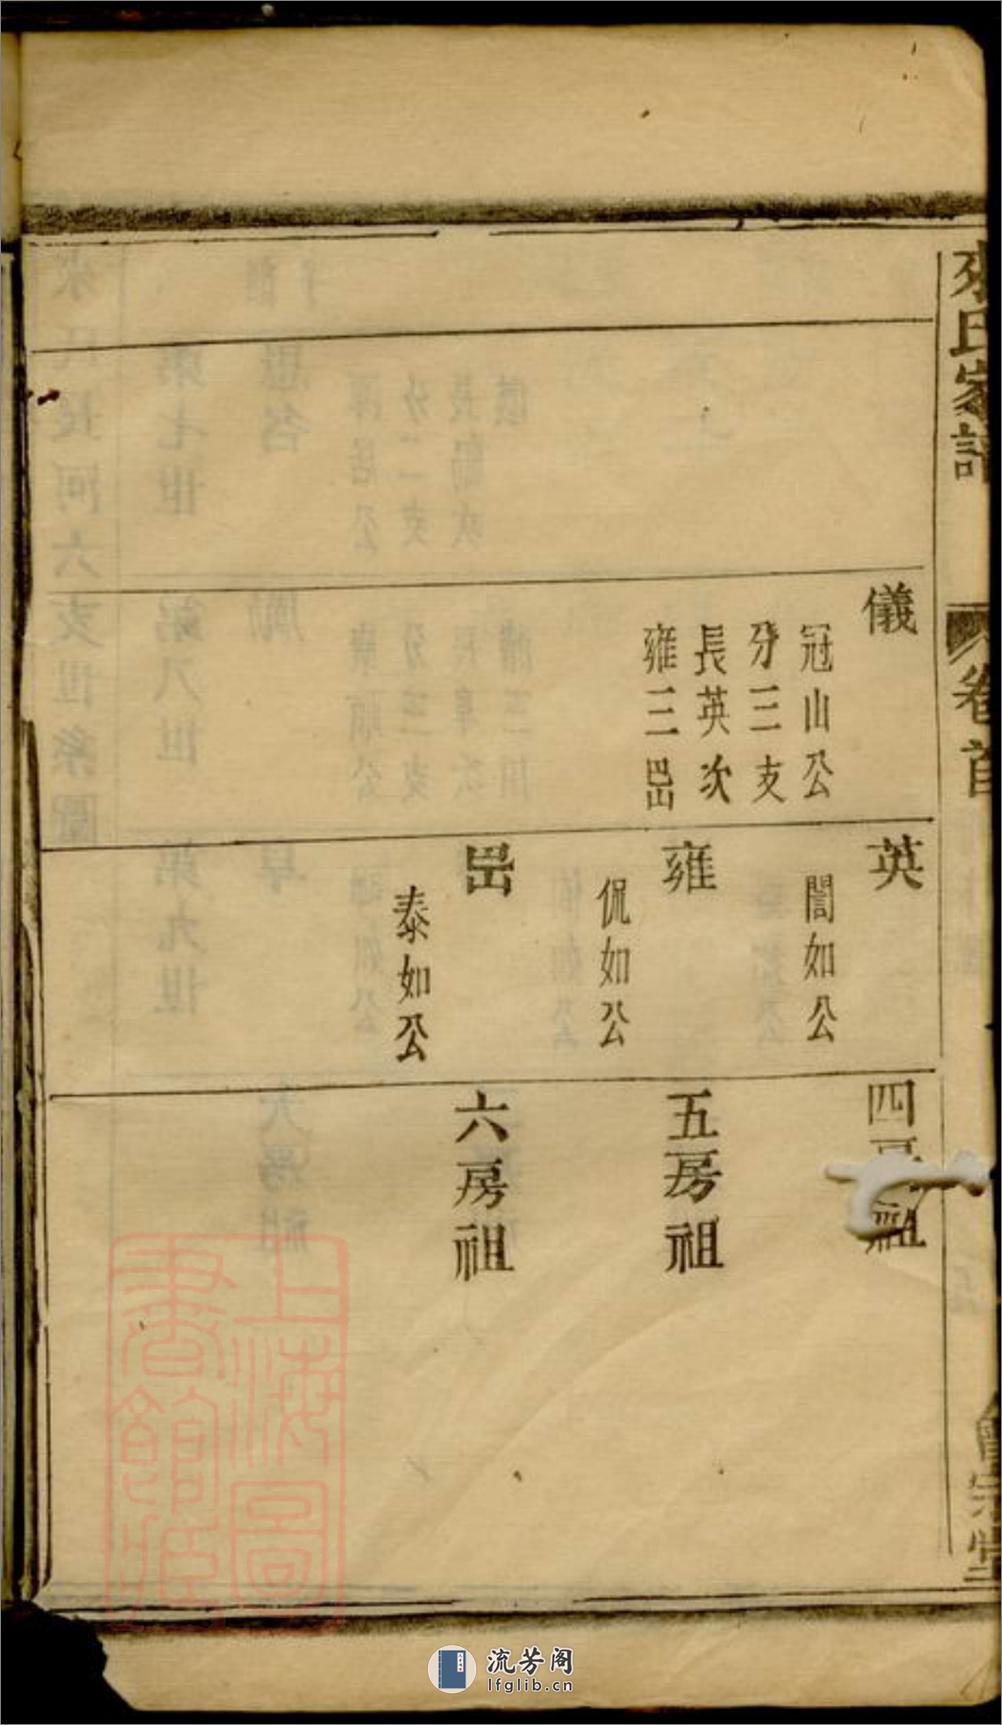 來氏家譜
卷首
會宗堂
儀
冠山公
分三支
長英次
雍三嵒
英
誾如公
雍
侃如公
嵒
泰如公
四房祖
五房祖
六房祖
上海圖
書館藏
流芳阁
lfglib.cn